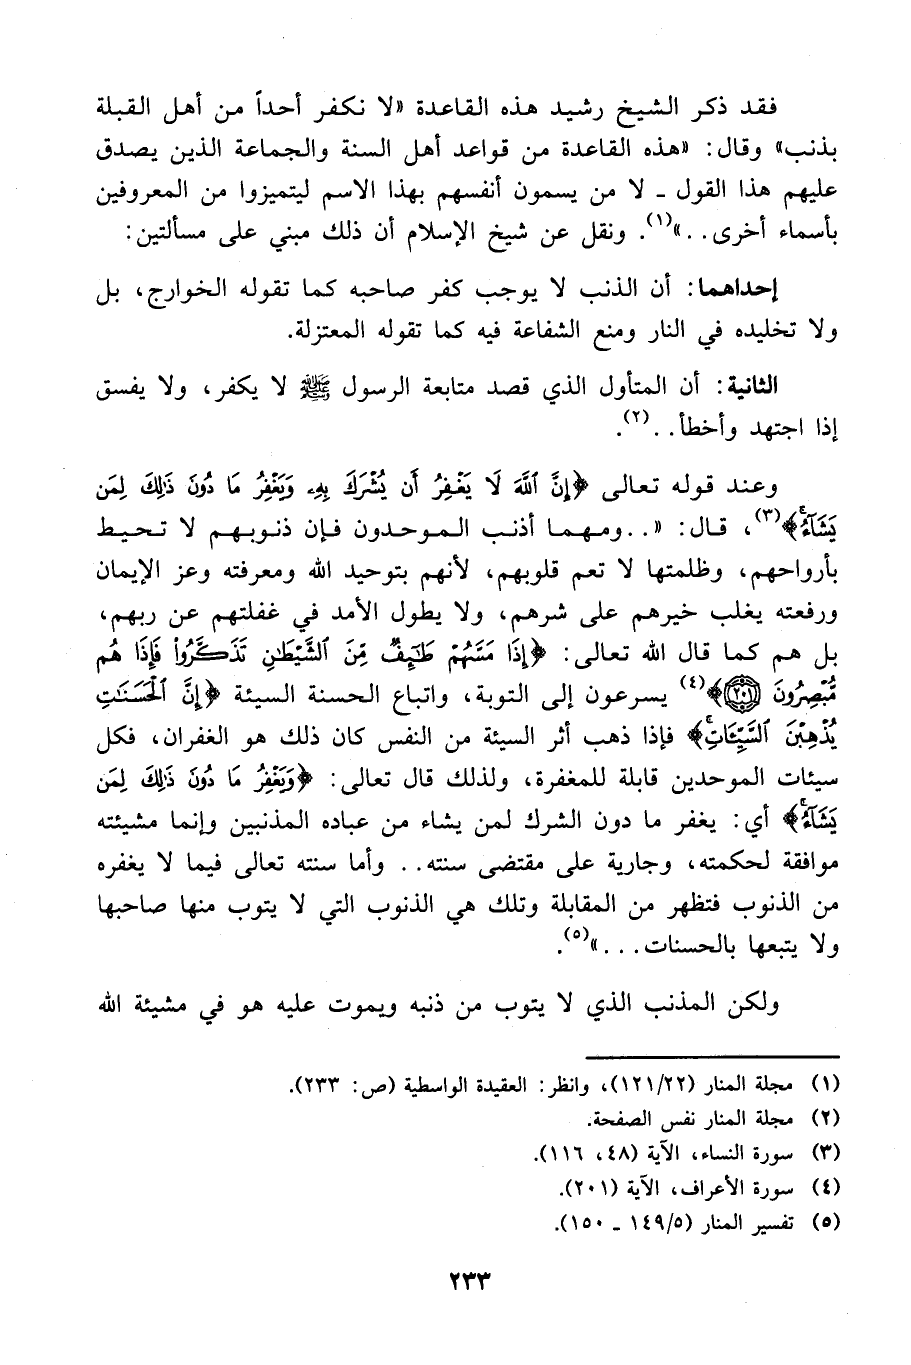 فقد ذكر الشيخ رشيد هذه القاعدة «لا نكفر أحداً من أهل القبلة
بذنب» وقال: «هذه القاعدة من قواعد أهل السنة والجماعة الذين يصدق
عليهم هذا القول ـ لا من يسمون أنفسهم بهذا الاسم ليتميزوا من المعروفين
بأسماء أخرى..»(١). ونقل عن شيخ الإسلام أن ذلك مبني على مسألتين:
إحداهما: أن الذنب لا يوجب كفر صاحبه كما تقوله الخوارج، بل
ولا تخليده في النار ومنع الشفاعة فيه كما تقوله المعتزلة.
الثانية: أن المتأول الذي قصد متابعة الرسول ﷺ لا يكفر، ولا يفسق
إذا اجتهد وأخطأ..(٢).
وعند قوله تعالى ﴿إِنَّ ٱللَّهَ لَا يَغْفِرُ أَن يُشْرَكَ بِهِۦ وَيَغْفِرُ مَا دُونَ ذَٰلِكَ لِمَن
يَشَآءُۚ﴾(٣)، قال: «..ومهما أذنب الموحدون فإن ذنوبهم لا تحيط
بأرواحهم، وظلمتها لا تعم قلوبهم، لأنهم بتوحيد الله ومعرفته وعز الإيمان
ورفعته يغلب خيرهم على شرهم، ولا يطول الأمد في غفلتهم عن ربهم،
بل هم كما قال الله تعالى: ﴿إِذَا مَسَّهُمْ طَٰٓئِفٌ مِّنَ ٱلشَّيْطَٰنِ تَذَكَّرُوا۟ فَإِذَا هُم
مُّبْصِرُونَ ۝٢٠١﴾(٤) يسرعون إلى التوبة، واتباع الحسنة السيئة ﴿إِنَّ ٱلْحَسَنَٰتِ
يُذْهِبْنَ ٱلسَّيِّـَٔاتِۚ﴾ فإذا ذهب أثر السيئة من النفس كان ذلك هو الغفران، فكل
سيئات الموحدين قابلة للمغفرة، ولذلك قال تعالى: ﴿وَيَغْفِرُ مَا دُونَ ذَٰلِكَ لِمَن
يَشَآءُۚ﴾ أي: يغفر ما دون الشرك لمن يشاء من عباده المذنبين وإنما مشيئته
موافقة لحكمته، وجارية على مقتضى سنته.. وأما سنته تعالى فيما لا يغفره
من الذنوب فتظهر من المقابلة وتلك هي الذنوب التي لا يتوب منها صاحبها
ولا يتبعها بالحسنات...»(٥).
ولكن المذنب الذي لا يتوب من ذنبه ويموت عليه هو في مشيئة الله
(١) مجلة المنار (١٢١/٢٢)، وانظر: العقيدة الواسطية (ص: ٢٣٣).
(٢) مجلة المنار نفس الصفحة.
(٣) سورة النساء، الآية (٤٨، ١١٦).
(٤) سورة الأعراف، الآية (٢٠١).
(٥) تفسير المنار (١٤٩/٥ ـ ١٥٠).
٢٣٣